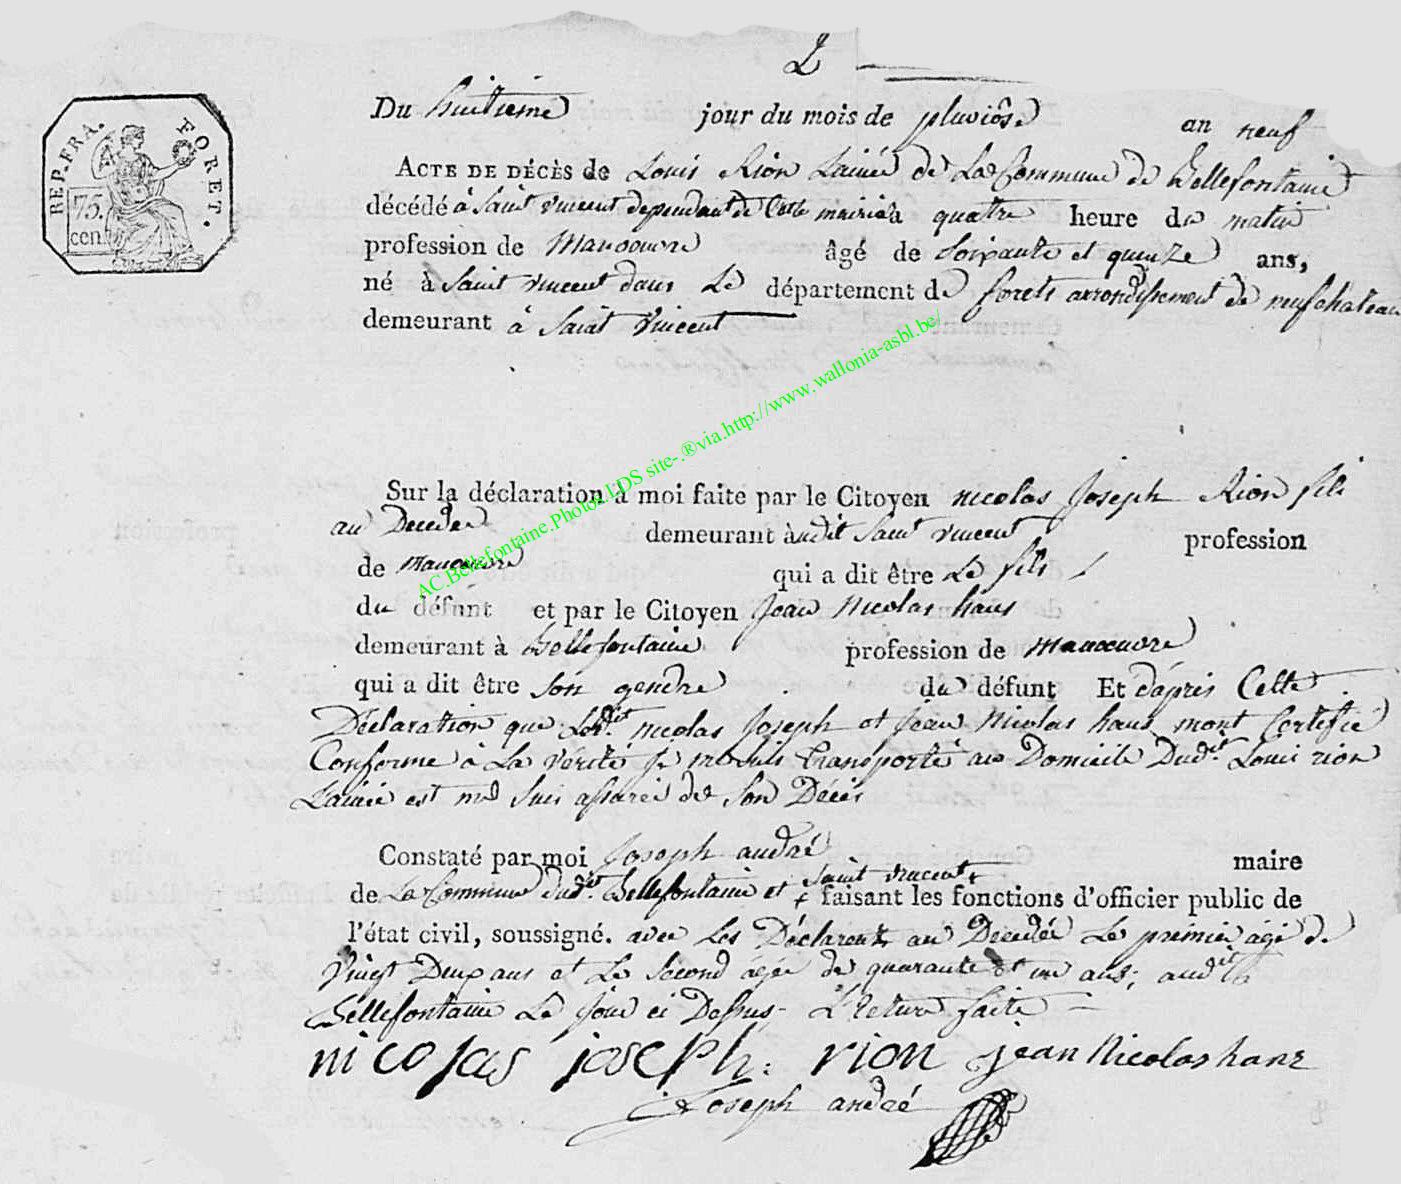 2
REP. FRA. FORET.
75. cen
Du huitieme jour du mois de pluviôse an neuf
ACTE DE DÉCÈS de Louis Rion Lainée de La Commune de Bellefontaine
décédé à Saint vincent dependant de Cette mairie à quatre heure du matin
profession de Manoeuvre âgé de Soixante et quinze ans,
né à Saint vincent dans Le département de forets arrondissement de neufchateau
demeurant à Saint Vincent
Sur la déclaration à moi faite par le Citoyen nicolas Joseph Rion fils
au Decedee demeurant àudit Saint vincent profession
de Manoeuvre qui a dit être Le fils
du défunt et par le Citoyen Jean Nicolas hans
demeurant à Bellefontaine profession de manoeuvre
qui a dit être son gendre du défunt Et d'aprés Cette
Déclaration que Ledit nicolas Joseph et Jean Nicolas hans mont Certifié
Conforme à La Verité je me suis transporté au Domicile Dudit Louis rion
Lainée est me Suis assurée de Son Décès
Constaté par moi Joseph andré maire
de La Commune dudit Bellefontaine et Saint vincent faisant les fonctions d'officier public de
l'état civil, soussigné. avec Les Déclarents au Decedée Le premier agé de
Vingt Deux ans et Le Second agée de quarante et un ans; audit
Bellefontaine Le Jour ci Dessus; Lecture faite
nicolas joseph: rion jean Nicolas hans
Joseph andré
AC.Bellefontaine.Photos.LDS site-.®via.http://www.wallonia-asbl.be/